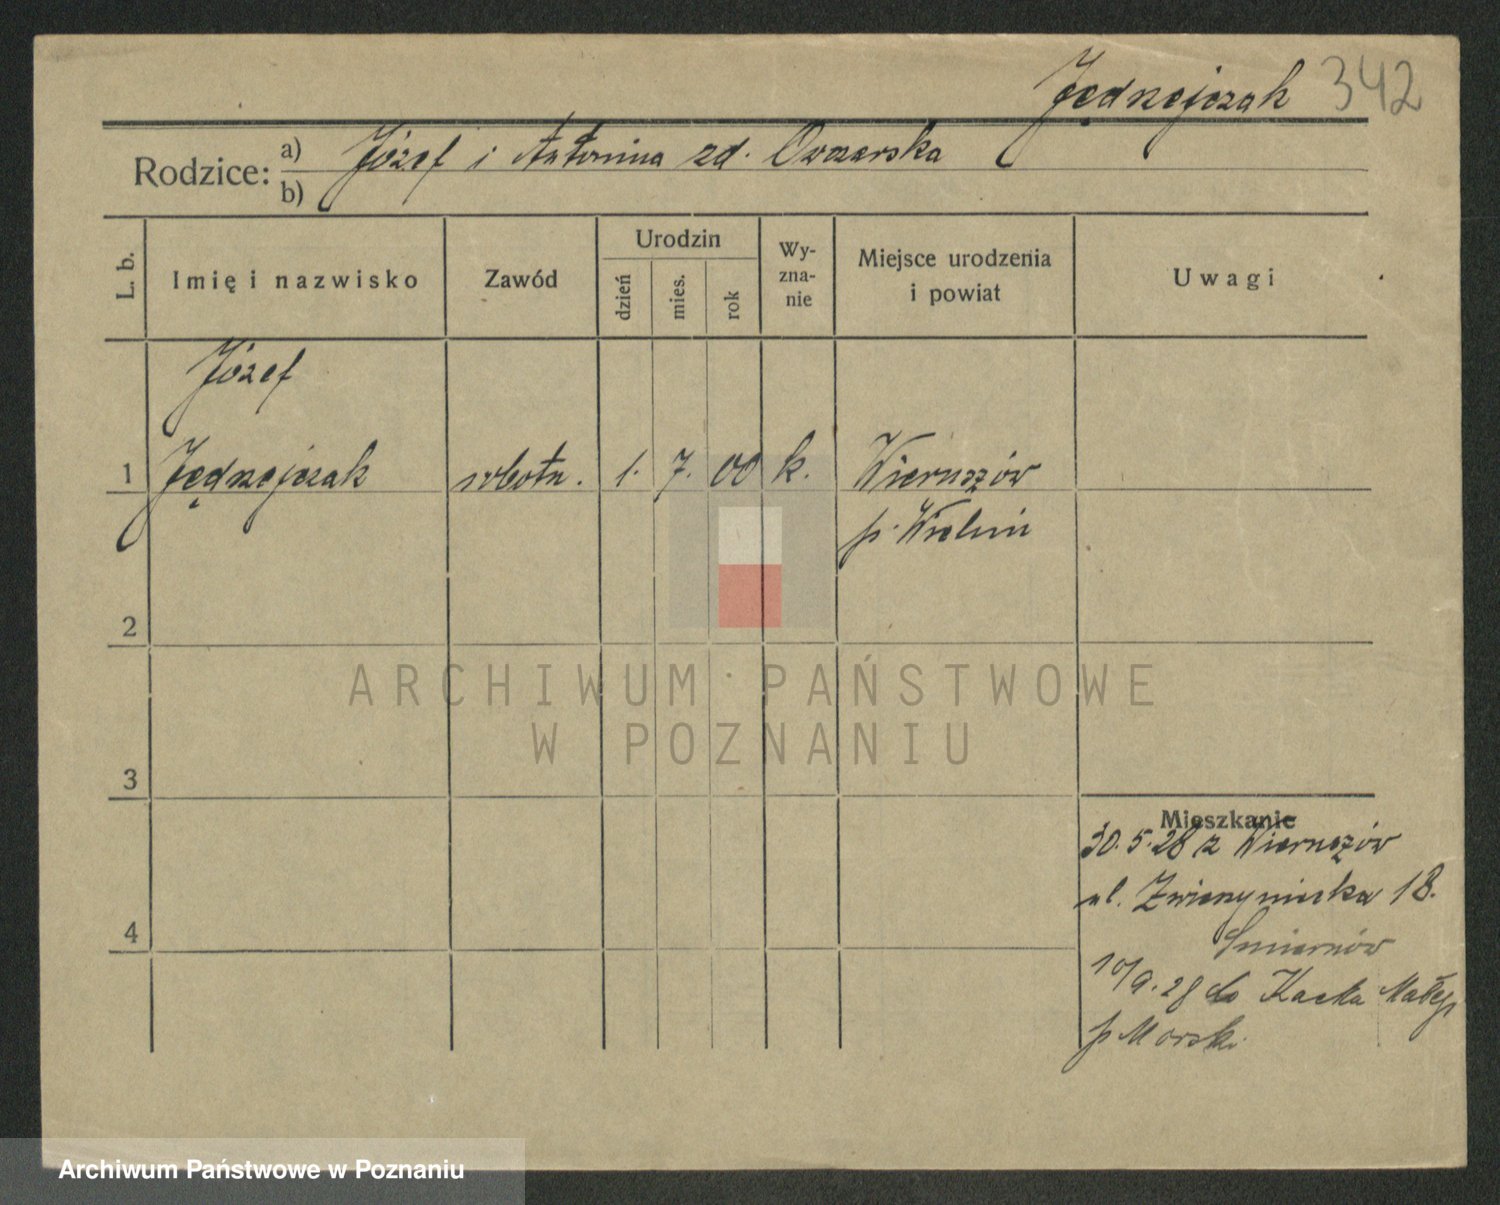 Jędrzejczak 342
Rodzice: a) Józef i Antonina zd. Owczarska
b)
L. b.
Imię i nazwisko
Zawód
Urodzin
dzień
mies.
rok
Wy-
zna-
nie
Miejsce urodzenia
i powiat
Uwagi
Józef
1 Jędrzejczak robotn. 1. 7. 00 k. Wieruszów
p. Wieluń
2
ARCHIWUM PAŃSTWOWE
W POZNANIU
3
Mieszkanie
30.5.28 z Wieruszów
ul. Zwierzyniecka 18.
4
10/9.28 do Kacka Małego
p Morski
Archiwum Państwowe w Poznaniu